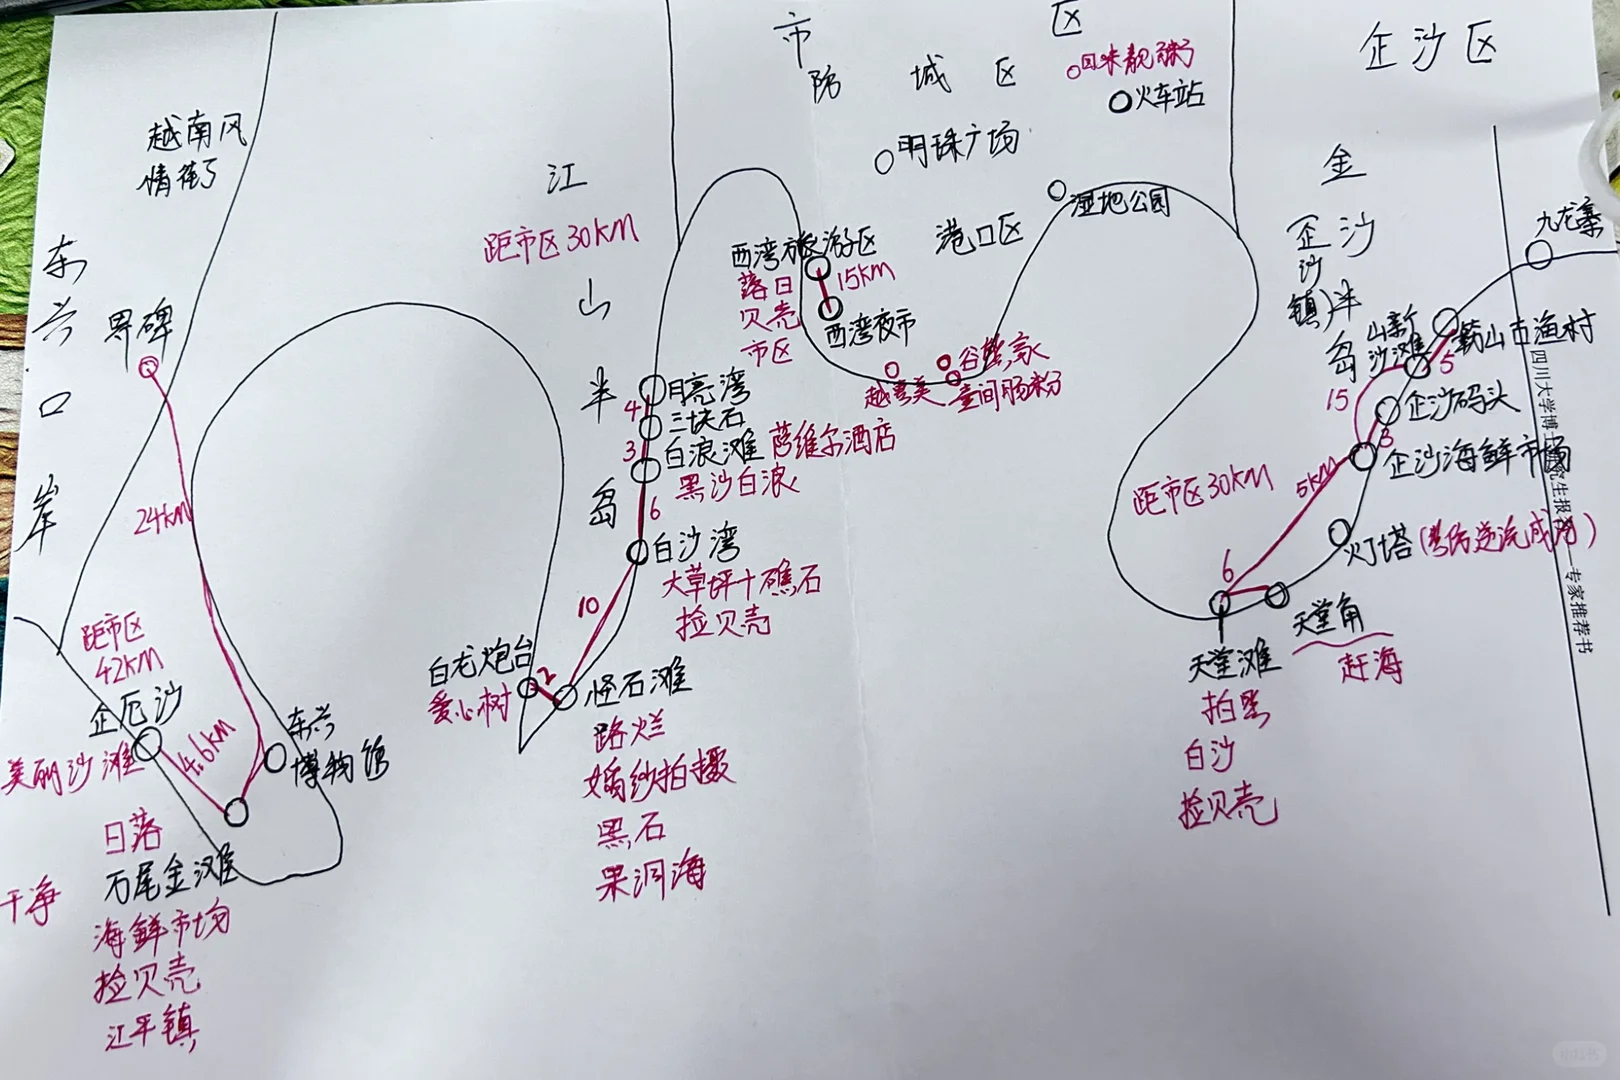 市
区
防 城 区
企沙区
回味靓粥
火车站
明珠广场
越南风
情街
东
兴
口
岸
界碑
24KM
距市区
42KM
企厄沙
美丽沙滩
4.6KM
东兴
博物馆
日落
石尾金滩
干净
海鲜市场
捡贝壳
江平镇
江
山
半
岛
距市区30KM
月亮湾
4
三块石
3
白浪滩
萨维尔酒店
黑沙白浪
6
白沙湾
大草坪+礁石
捡贝壳
10
白龙炮台
爱心树
2
怪石滩
路烂
婚纱拍摄
黑石
果洞海
港口区
湿地公园
落日
贝壳
市区
15KM
西湾夜市
童间肠粉
金
企沙
沙
镇)半
岛
九龙寨
山新
沙滩
古渔村
5
15
企沙码头
3
企沙海鲜市场
距市区30KM
5KM
灯塔
6
天堂角
赶海
天堂滩
拍黑
白沙
捡贝壳
四川大学博
究生报
专家推荐书